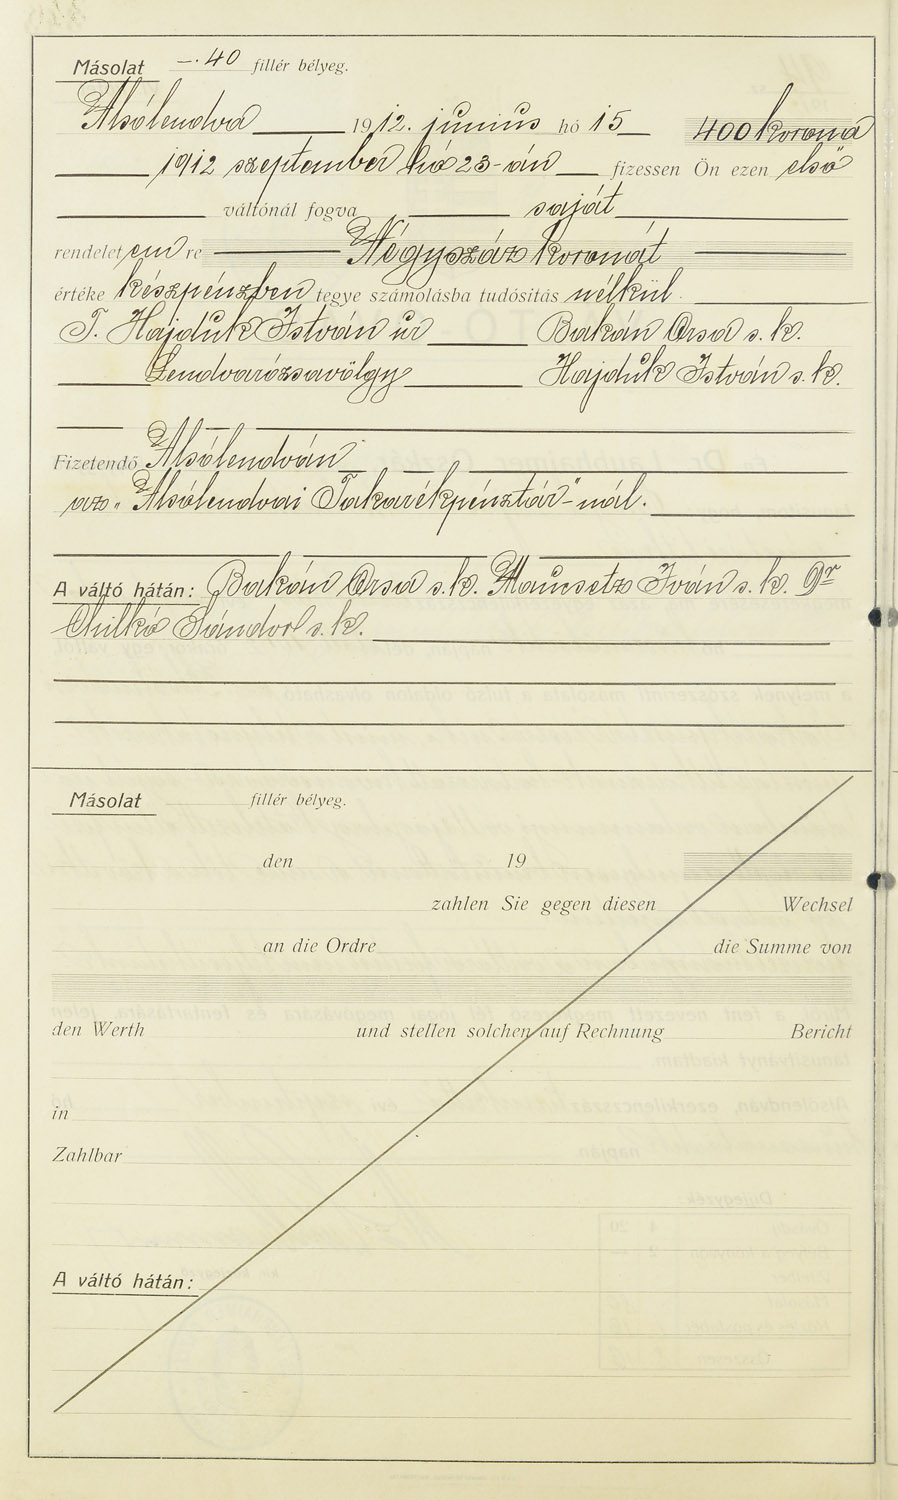 Másolat —.40 fillér bélyeg.
Alsólendva 1912. junius hó 15 400 korona
1912 szeptember hó 23-án fizessen Ön ezen első
váltónál fogva saját
rendelet em re Négyszáz koronát
értéke készpénzben tegye számolásba tudósítás nélkül.
T. Hajdúk István úr Bakán Orsa s. k.
Lendvarózsavölgy Hajdúk István s. k.
Fizetendő Alsólendván
az „Alsólendvai Takarékpénztár"-nál.
A váltó hátán: Bakán Orsa s. k. Iván s. k. Dr
Sándor s. k.
Másolat fillér bélyeg.
den 19
zahlen Sie gegen diesen Wechsel
an die Ordre die Summe von
den Werth und stellen solchen auf Rechnung Bericht
in
Zahlbar
A váltó hátán: